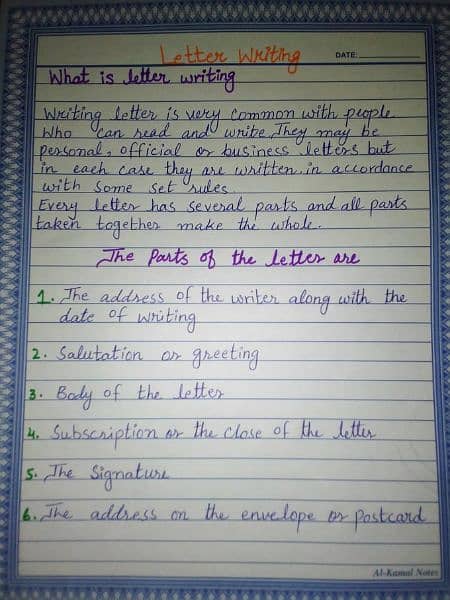 Letter Writing
DATE:
What is letter writing
Writing letter is very common with people
Who can read and write. They may be
personal, official or business letters but
in each case they are written in accordance
with some set rules
Every letter has several parts and all parts
taken together make the whole.
The Parts of the letter are
1. The address of the writer along with the
date of writing
2. Salutation or greeting
3. Body of the letter
4. Subscription or the close of the letter
5. The Signature
6. The address on the envelope or postcard
Al-Kamal Notes